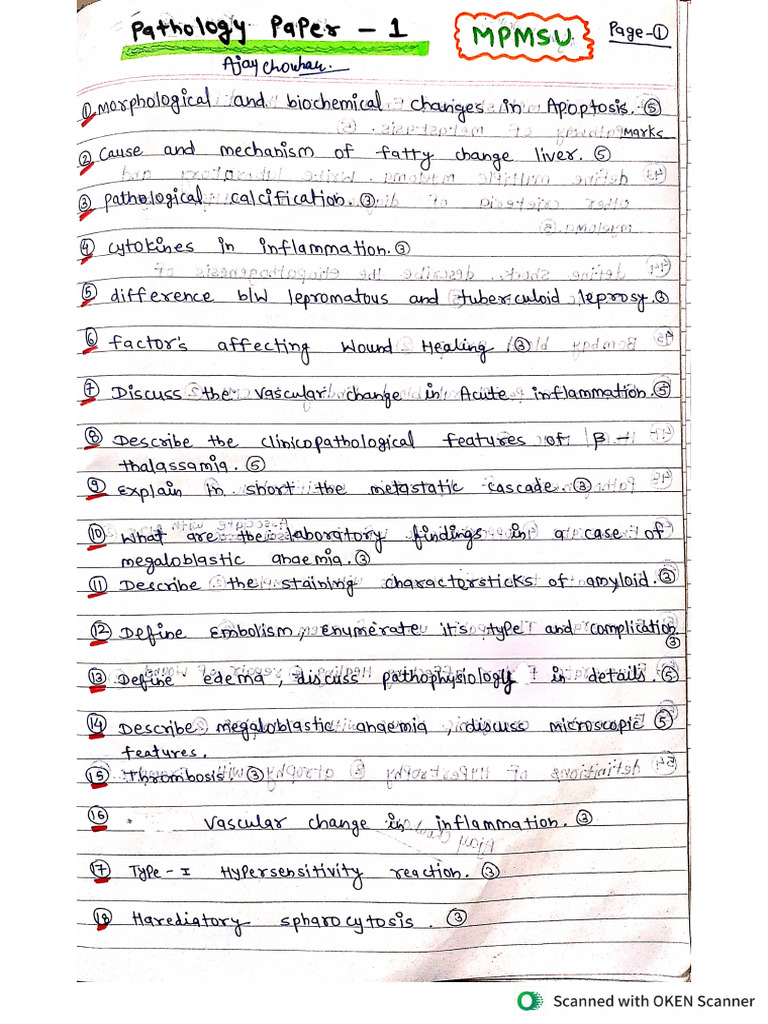 Pathology Paper - 1
MPMSU
Page-①
Ajay Chouhan.
① morphological and biochemical changes in Apoptosis. ⑤
marks
② Cause and mechanism of fatty change liver. ⑤
③ pathological calcification. ③
④ cytokines in inflammation. ③
⑤ difference b/w lepromatous and tuberculoid leprosy. ③
⑥ factor's affecting wound Healing ③
⑦ Discuss the vascular change in Acute inflammation. ⑤
⑧ Describe the clinicopathological features of β -
thalassamia. ⑤
⑨ Explain in short the metastatic cascade. ③
⑩ What are the laboratory findings in a case of
megaloblastic anaemia. ③
⑪ Describe the staining charactorsticks of amyloid. ③
⑫ Define Embolism, Enumerate it's type and complication
③
⑬ Define edema, discuss pathophysiology in details. ⑤
⑭ Describe megaloblastic anaemia, discuss microscopic ⑤
features.
⑮ Thrombosis ③
⑯ Vascular change in inflammation. ③
⑰ Type - I Hypersensitivity reaction. ③
⑱ Harediatory spharocytosis. ③
Scanned with OKEN Scanner